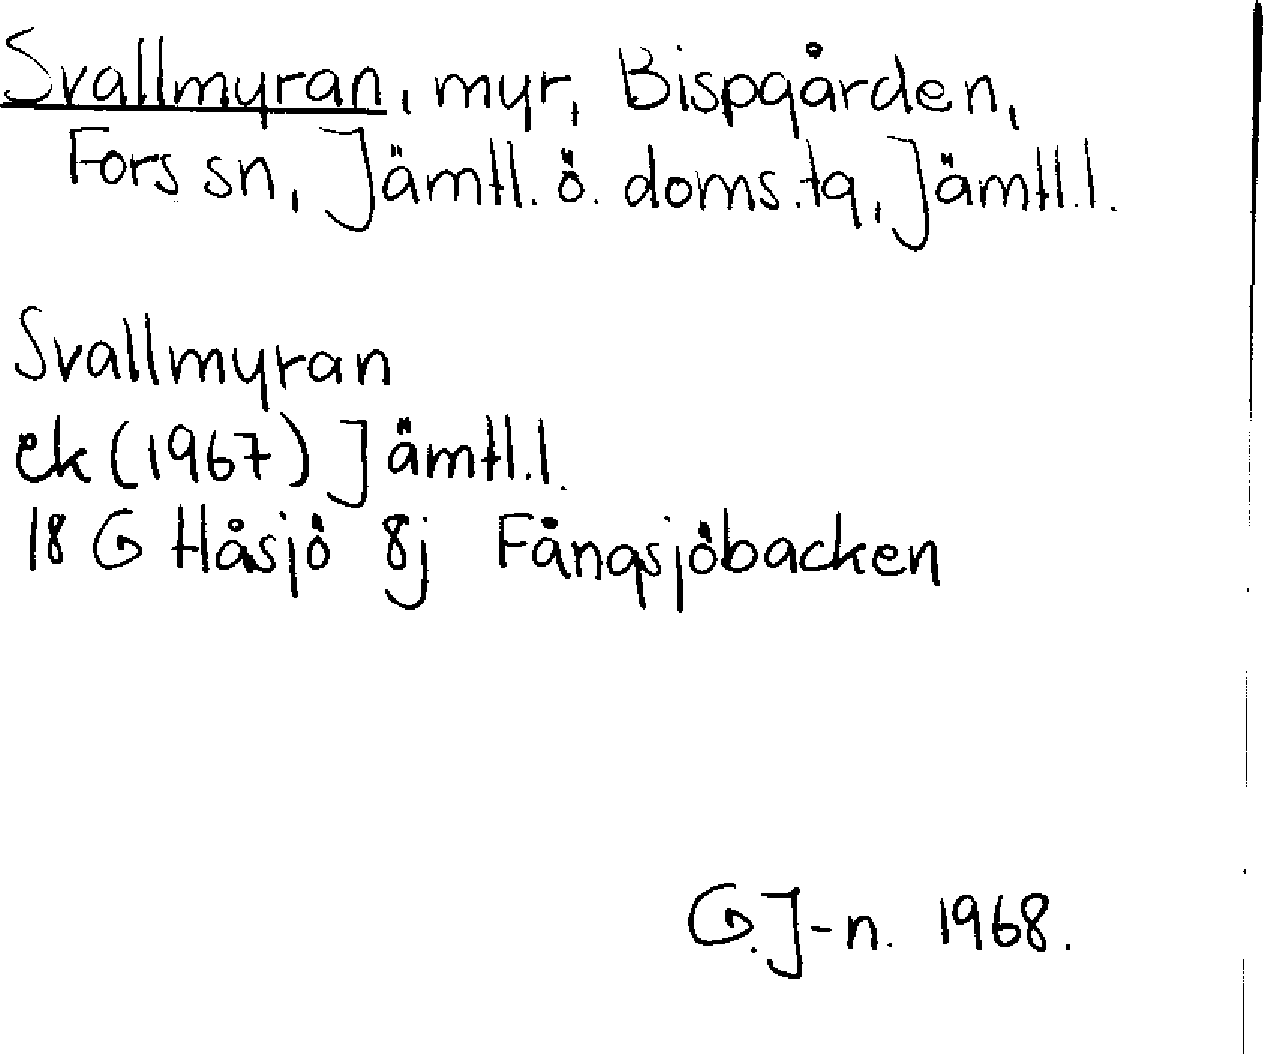 Svallmyran, myr, Bispgården,
Fors sn, Jämtl. ö. doms. tg, Jämtl. l.
Svallmyran
ek (1967) Jämtl. l.
18 G Håsjö 8j Fångsjöbacken
G. J-n. 1968.